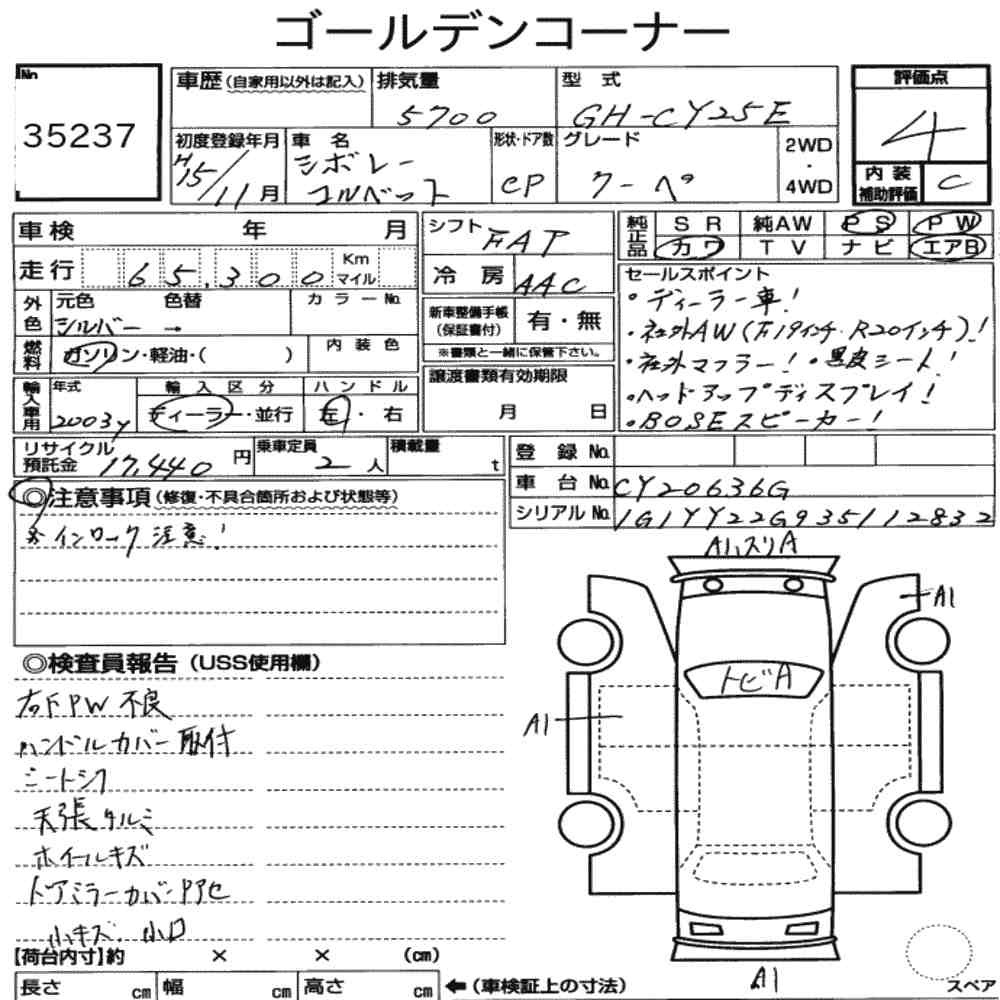 ゴールデンコーナー
No.
35237
車歴(自家用以外は記入)
排気量
5700
型 式
GH-CY25E
評価点
4
内装補助評価
C
初度登録年月
H15/11月
車 名
シボレー
コルベット
形状・ドア数
CP
グレード
クーペ
2WD
・
4WD
車検 年 月
走行 65,300 Km マイル
外色
元色 色替
シルバー →
カラーNo.
燃料
ガソリン・軽油・( )
内装色
輸入車用
年式
2003y
輸入区分
ディーラー・並行
ハンドル
左・右
シフト
FAT
冷房
AAC
新車整備手帳
(保証書付)
有・無
※書類と一緒に保管下さい。
譲渡書類有効期限
月 日
純正品
SR 純AW PS PW
カワ TV ナビ エアB
セールスポイント
・ディーラー車!
・社外AW(F19インチ・R20インチ)!
・社外マフラー!・黒皮シート!
・ヘッドアップディスプレイ!
・BOSEスピーカー!
リサイクル預託金
17,440円
乗車定員
2人
積載量
t
登録No.
車台No.
CY20636G
シリアルNo.
1G1YY22G935112832
◎注意事項(修復・不具合箇所および状態等)
※インロック注意!
◎検査員報告(USS使用欄)
右FPW不良
ハンドルカバー取付
シートシワ
天張タルミ
ホイールキズ
ドアミラーカバー
小キズ、小凹
A1ハスリA
A1
トビA
A1
A1
スペア
【荷台内寸】約 × × (cm)
長さ cm 幅 cm 高さ cm ←(車検証上の寸法)